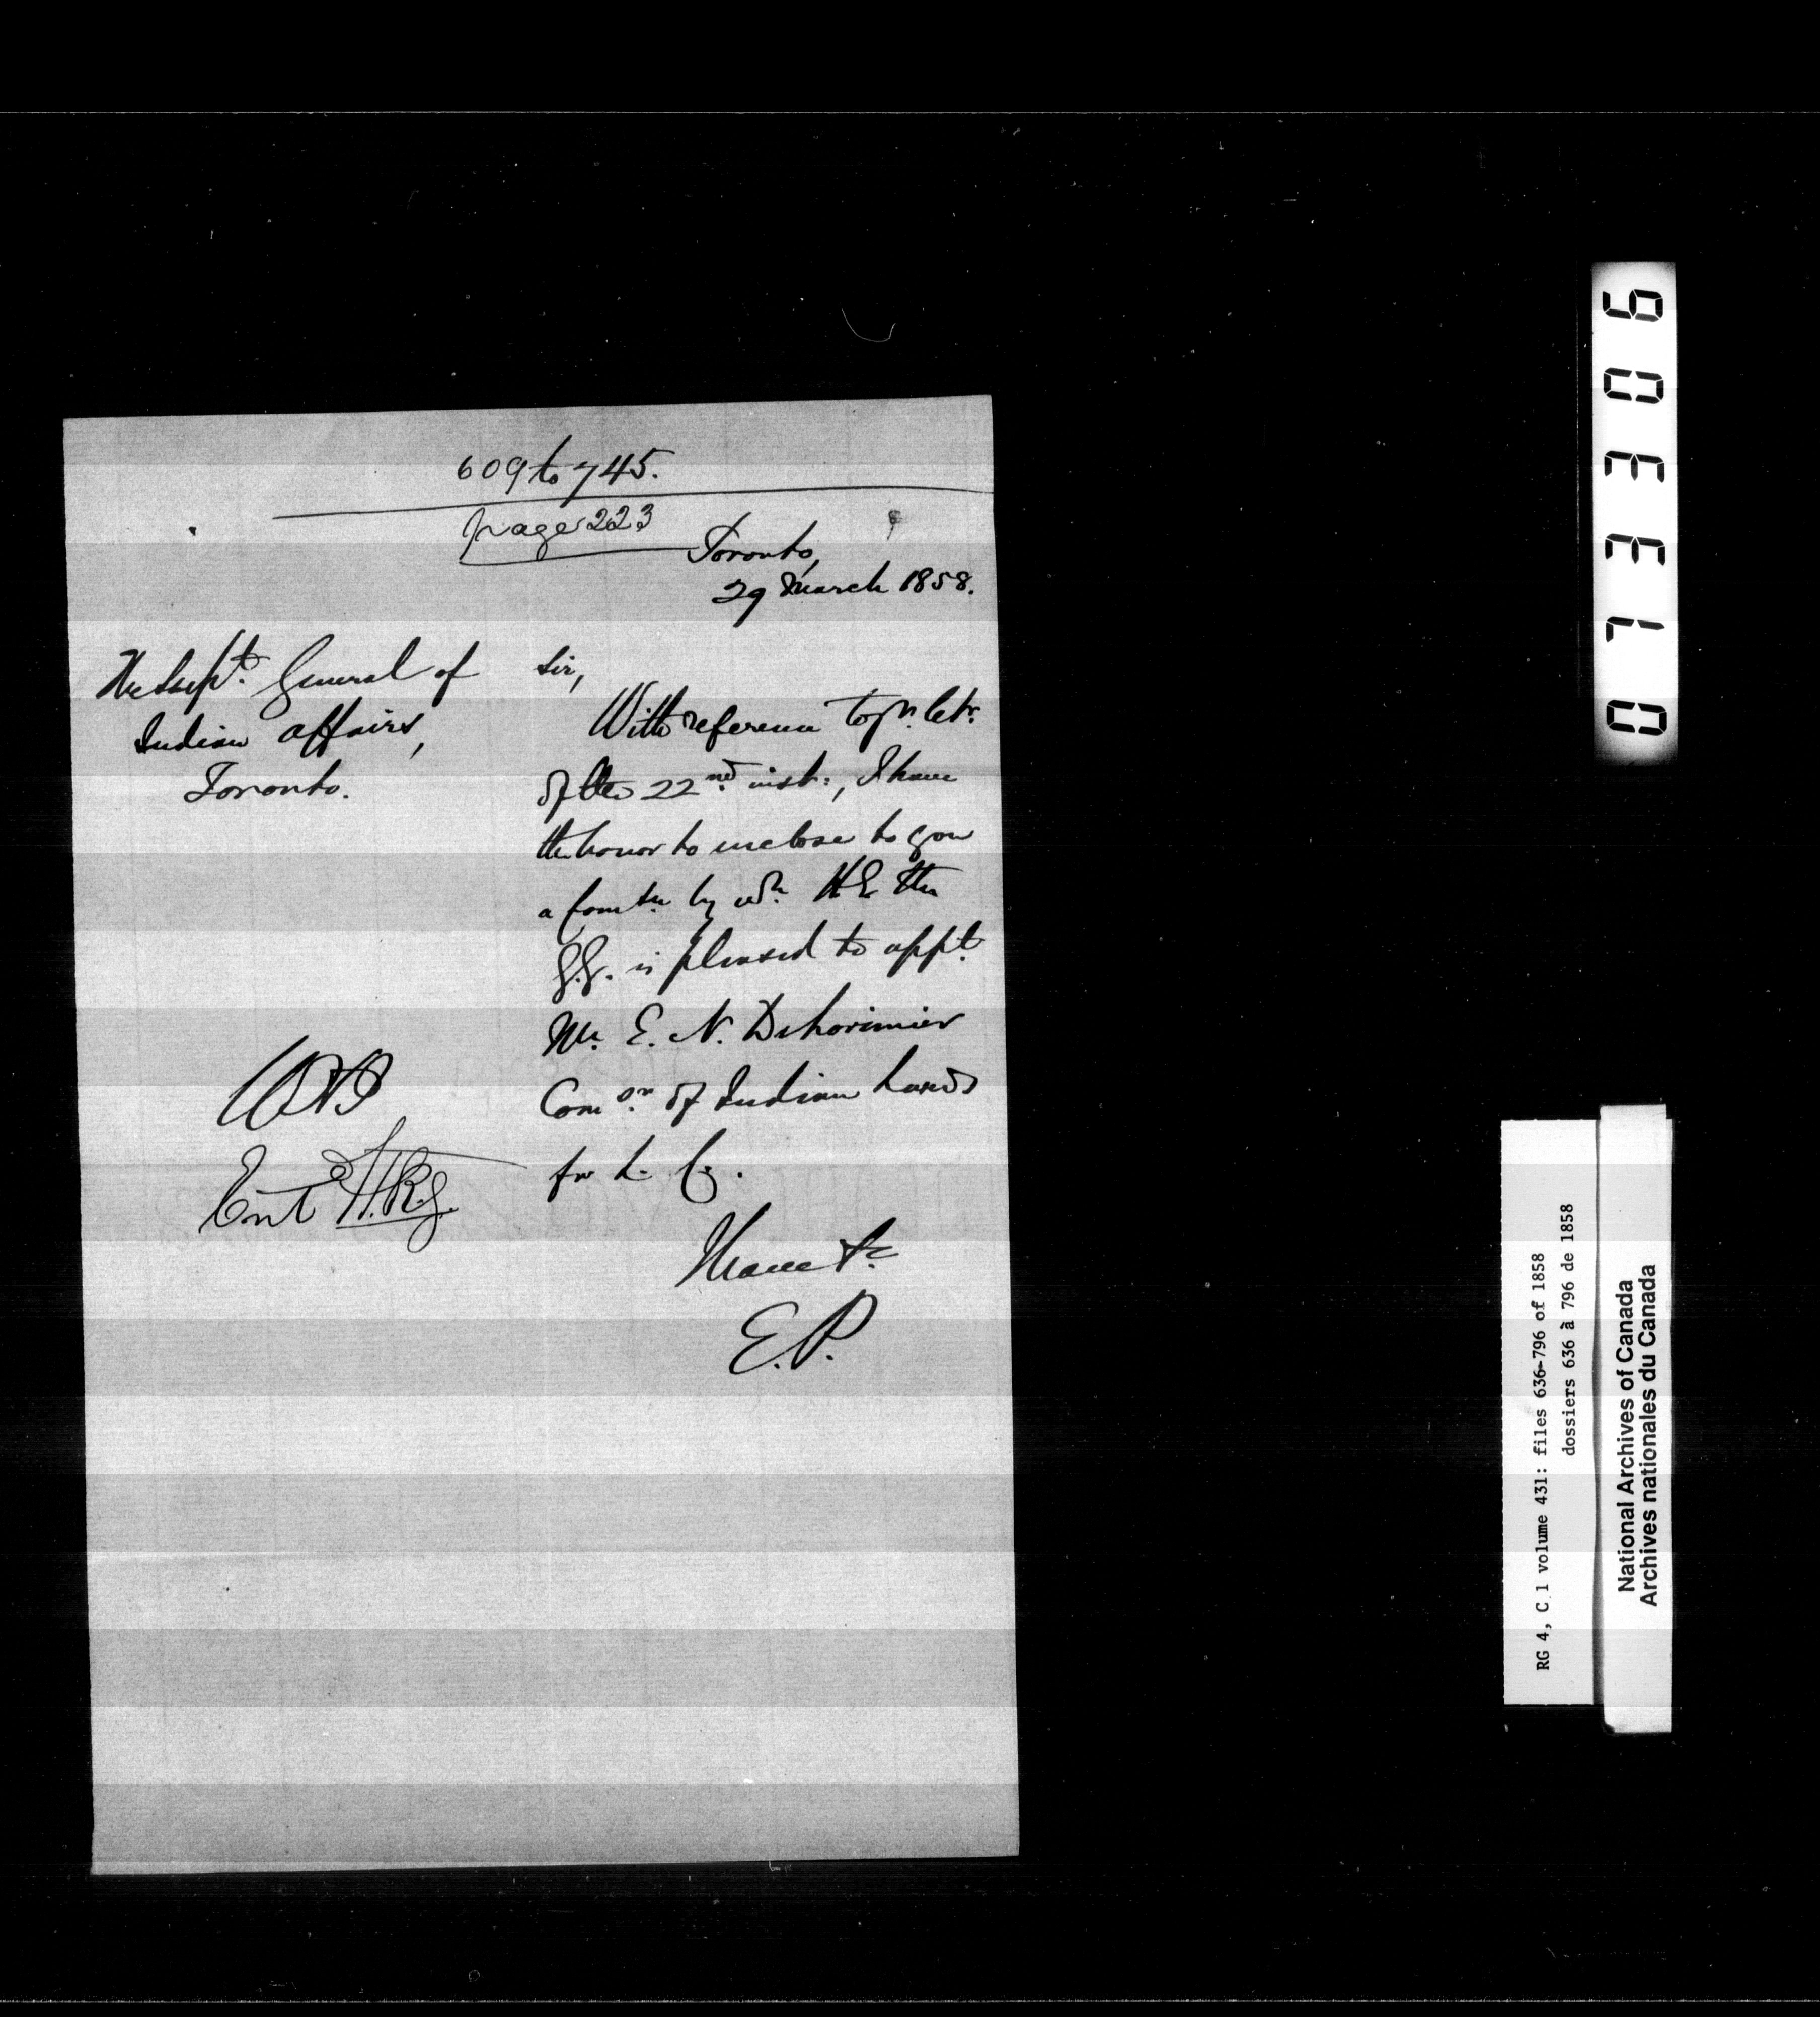 609 to 745.
page 223
Toronto,
29 March 1858.
The Supt. General of
Indian Affairs,
Toronto.
Sir,
With reference to yr. letr.
of the 22nd. inst:, I have
the honor to inclose to you
a Comsn. by wh. H.E. the
G.G. is pleased to appt.
Mr. E. N. DeLorimier
Comr. of Indian Lands
for L. C.
I have &c.
E.P.
Entd H.R.J.
073306
RG 4, C 1 volume 431: files 636-796 of 1858
dossiers 636 à 796 de 1858
National Archives of Canada
Archives nationales du Canada